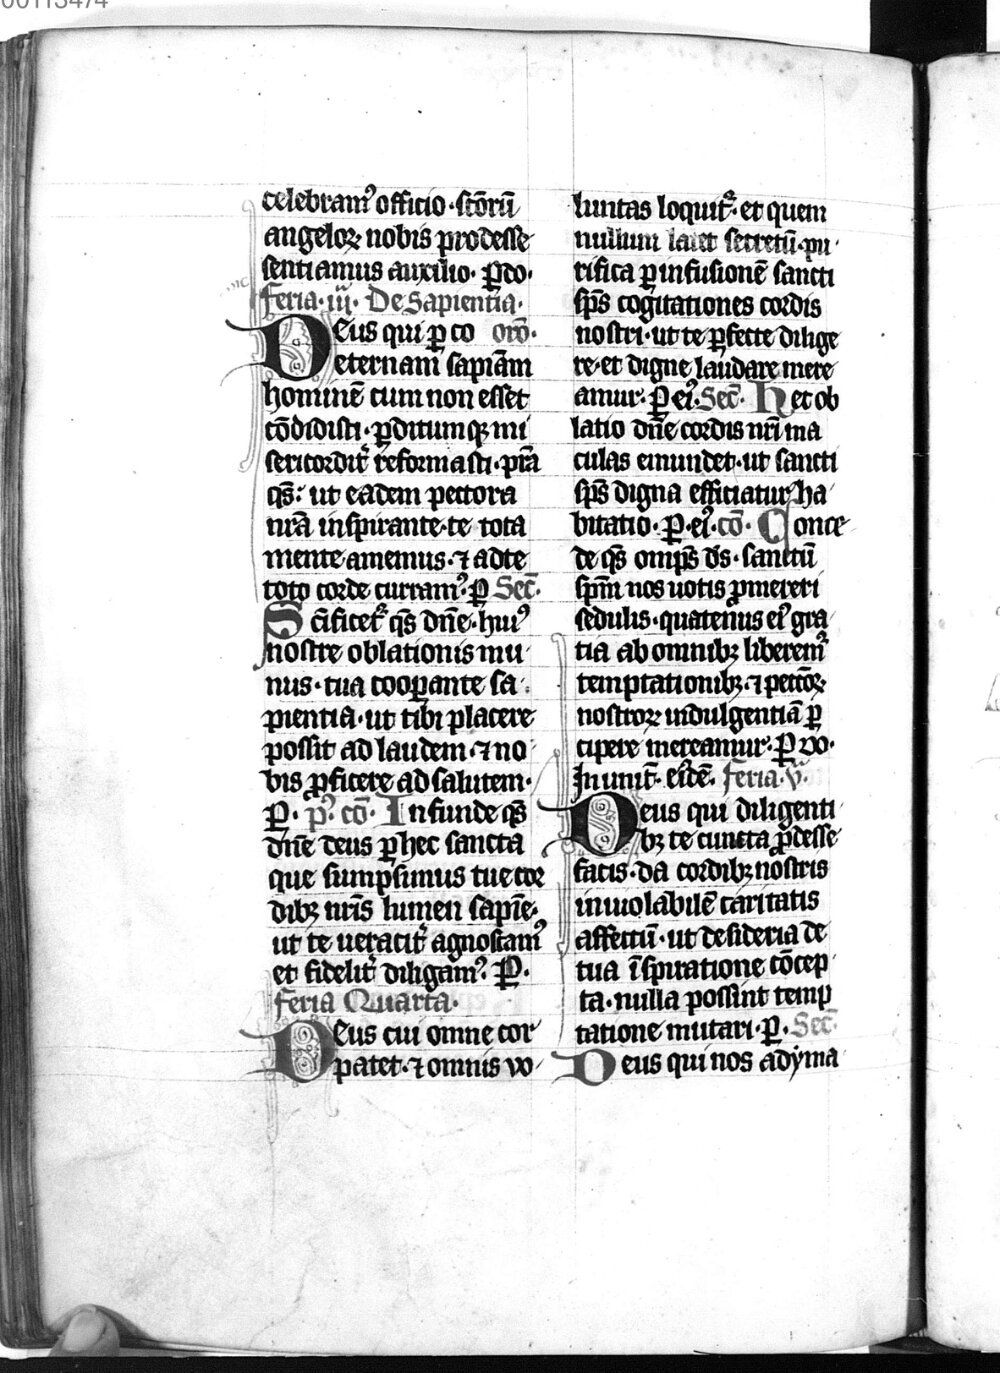 00113474
celebramꝰ officio · sc̄orū
angeloꝝ nobis prodesse
sentiamus auxilio · ꝑ do ·
feria · iij · De Sapientia ·
Deus qui ꝑ co or̄o ·
eternam sapīam
hominē cum non esset
cōdidisti · ꝑditumqꝫ mi
sericordit̄ reformasti · pr̄a
qs̄ · ut eadem pectora
nr̄a inspirante · te tota
mente amemus · ⁊ ad te
toto corde curramꝰ · ꝑ Sec̄ ·
Sc̄ificet᷑ qs̄ dn̄e · huiꝰ
nostre oblationis mu
nus · tua cooꝑante sa
pientia · ut tibi placere
possit ad laudem · ⁊ no
bis ꝓficere ad salutem ·
ꝑ · p̄ · cō · Infunde qs̄
dn̄e deus ꝑ hec sancta
que sumpsimus tue cor
dibꝫ nr̄is lumen sapīe ·
ut te ueracit̄ agnoscamꝰ
et fidelit̄ diligamꝰ · ꝑ ·
feria Quarta ·
Deus cui omne cor
patet · ⁊ omnis vo
luntas loquit᷑ · et quem
nullum latet secretū · pu
rifica ꝑ infusionē sancti
sp̄s cogitationes cordis
nostri · ut te ꝑfecte dilige
re · et digne laudare mere
amur · ꝑ ei · Sec̄ · Hec ob
latio dn̄e cordis nr̄i ma
culas emundet · ut sancti
sp̄s digna efficiatur ha
bitatio · ꝑ · ei · cō · Conce
de qs̄ omp̄s ds̄ · sanctū
sp̄m nos uotis ꝓmereri
sedulis · quatenus eiꝰ gra
tia ab omnibꝫ liberemꝰ
temptationibꝫ · ⁊ pecc̄oꝝ
nostroꝝ indulgentiā ꝑ
cipere mereamur · ꝑ do ·
In unit̄ · eiꝰdē · feria · v̄ ·
Deus qui diligenti
bꝫ te cuncta ꝓdesse
facis · da cordibꝫ nostris
inuiolabilē caritatis
affectū · ut desideria de
tua īspiratione cōcep
ta · nulla possint temp
tatione mutari · ꝑ · Sec̄
Deus qui nos ad yma